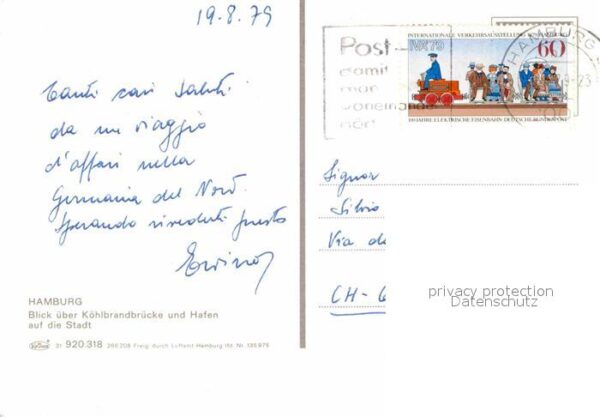 19.8.79
Tanti cari saluti
da un viaggio
d'affari nella
Germania del Nord.
Sperando rivederti presto
HAMBURG
Blick über Köhlbrandbrücke und Hafen
auf die Stadt
21 920.318 266208 Freig. durch Luftamt Hamburg lfd. Nr. 135975
Post
damit
man
voneinander
hört
INTERNATIONALE VERKEHRSAUSSTELLUNG HAMBURG
IVA 79
60
100 JAHRE ELEKTRISCHE EISENBAHN DEUTSCHE BUNDESPOST
HAMBURG
Signor
Silvio
Via de
CH-6
privacy protection
Datenschutz